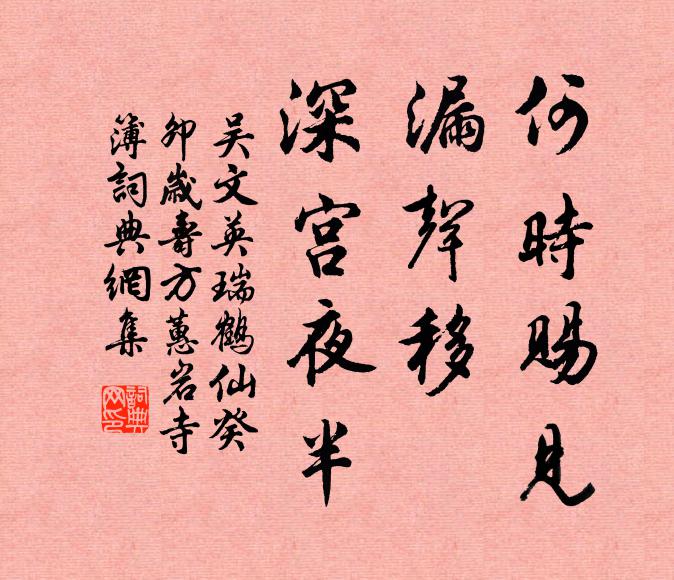 何時賜見
漏聲移
深宮夜半
吴文英瑞鶴仙癸
卯歲壽方蕙岩寺
簿詞典網集
詞典网印